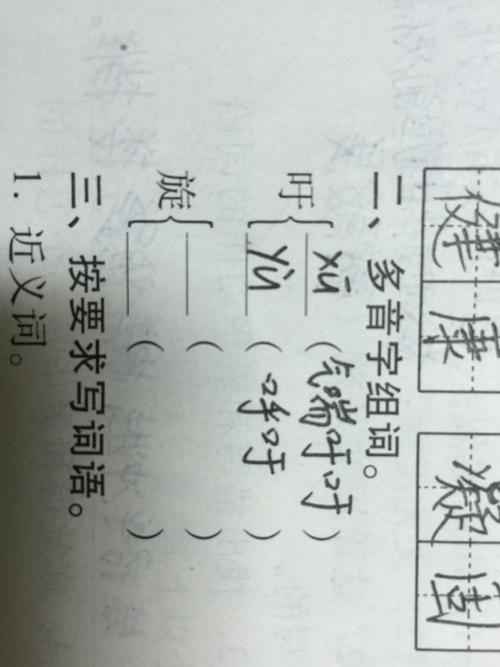 健康 凝固
二、多音字组词。
xū (气喘吁吁)
吁{
yù (呼吁)
____ ( )
旋{
____ ( )
三、按要求写词语。
1. 近义词。